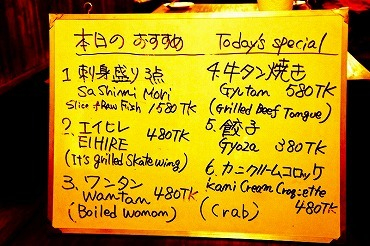 本日の おすすめ
1 刺身盛り3点
SaShimi Mori
Slice of Raw Fish 1580TK
2. エイヒレ 480TK
EIHIRE
(It's grilled Skate wing)
3. ワンタン 480TK
Wantam
(Boiled womam)
Today's special
4. 牛タン焼き
Gyutam 580TK
(Grilled Beef Tongue)
5. 餃子
Gyoza 380TK
6. カニクリームコロッケ
Kami Cream Croquette
(Crab) 480TK